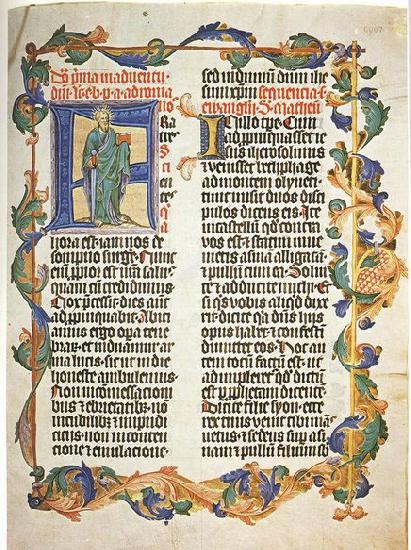 p̄ma in aduentu
dn̄i ad roma
nos
ra
tres
Sci
entes
hora est iam nos de
sompno surge. Nunc
em̄ ppior est nr̄a salus
quam cū credidimus
Nox p̄cessit dies aut̄
adpropinquabit. Abici
amus ergo opa tene
brar et induamur ar
ma lucis. sic ut in die
honeste ambulemus.
Non in comessacioni
bus et ebrietatib; nō
in cubilib; et inpudi
citijs non in conten
cione et emulacione.
sed induimini dnm ihe
sum xpm sequencia s.
ewangelij S. Matheū
In illo tp̄re Cum
adppinquasset ie
sus iherosolimis
et venisset bethphage
ad montem olyueti
tunc misit duos disci
pulos dicens eis. Ite
in castellū qd contra
vos est et statim inue
nietis asinam alligatā
et pullū cum ea. Solui
te et adducite michi. Et
si qs vobis aliqd dixe
rit dicite qa dn̄s hijs
opus habet et confestī
dimittet eos. Hoc au
tem totū factū est ut
adimpleret qd dictū
est p pphetam dicentē
Dicite filie syon ecce
rex tuus venit tibi mā
suetus et sedens sup asi
nam et pullum filium